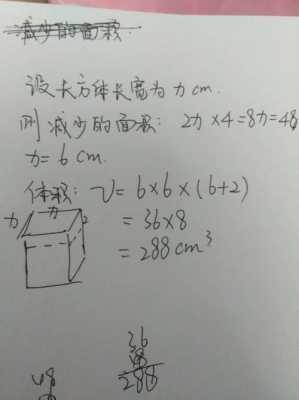 减少的面积:
设长方体长宽为 n cm.
则 减少的面积: 2n ×4=8n=48
n= 6 cm.
体积: V= 6×6×(6+2)
= 36×8
= 288 cm³
n n 2
36
288
48